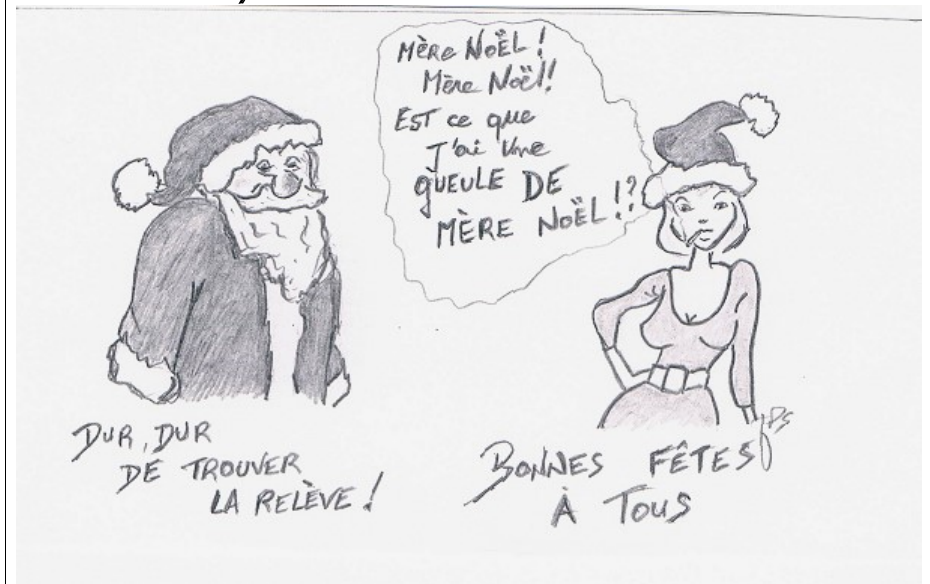 Mère Noël !
Mère Noël!!
EST ce que
J'ai Une
gUEULE DE
MÈRE NOËL !?
DUR, DUR
DE TROUVER
LA RELÈVE !
BONNES FÊTES
À TOUS